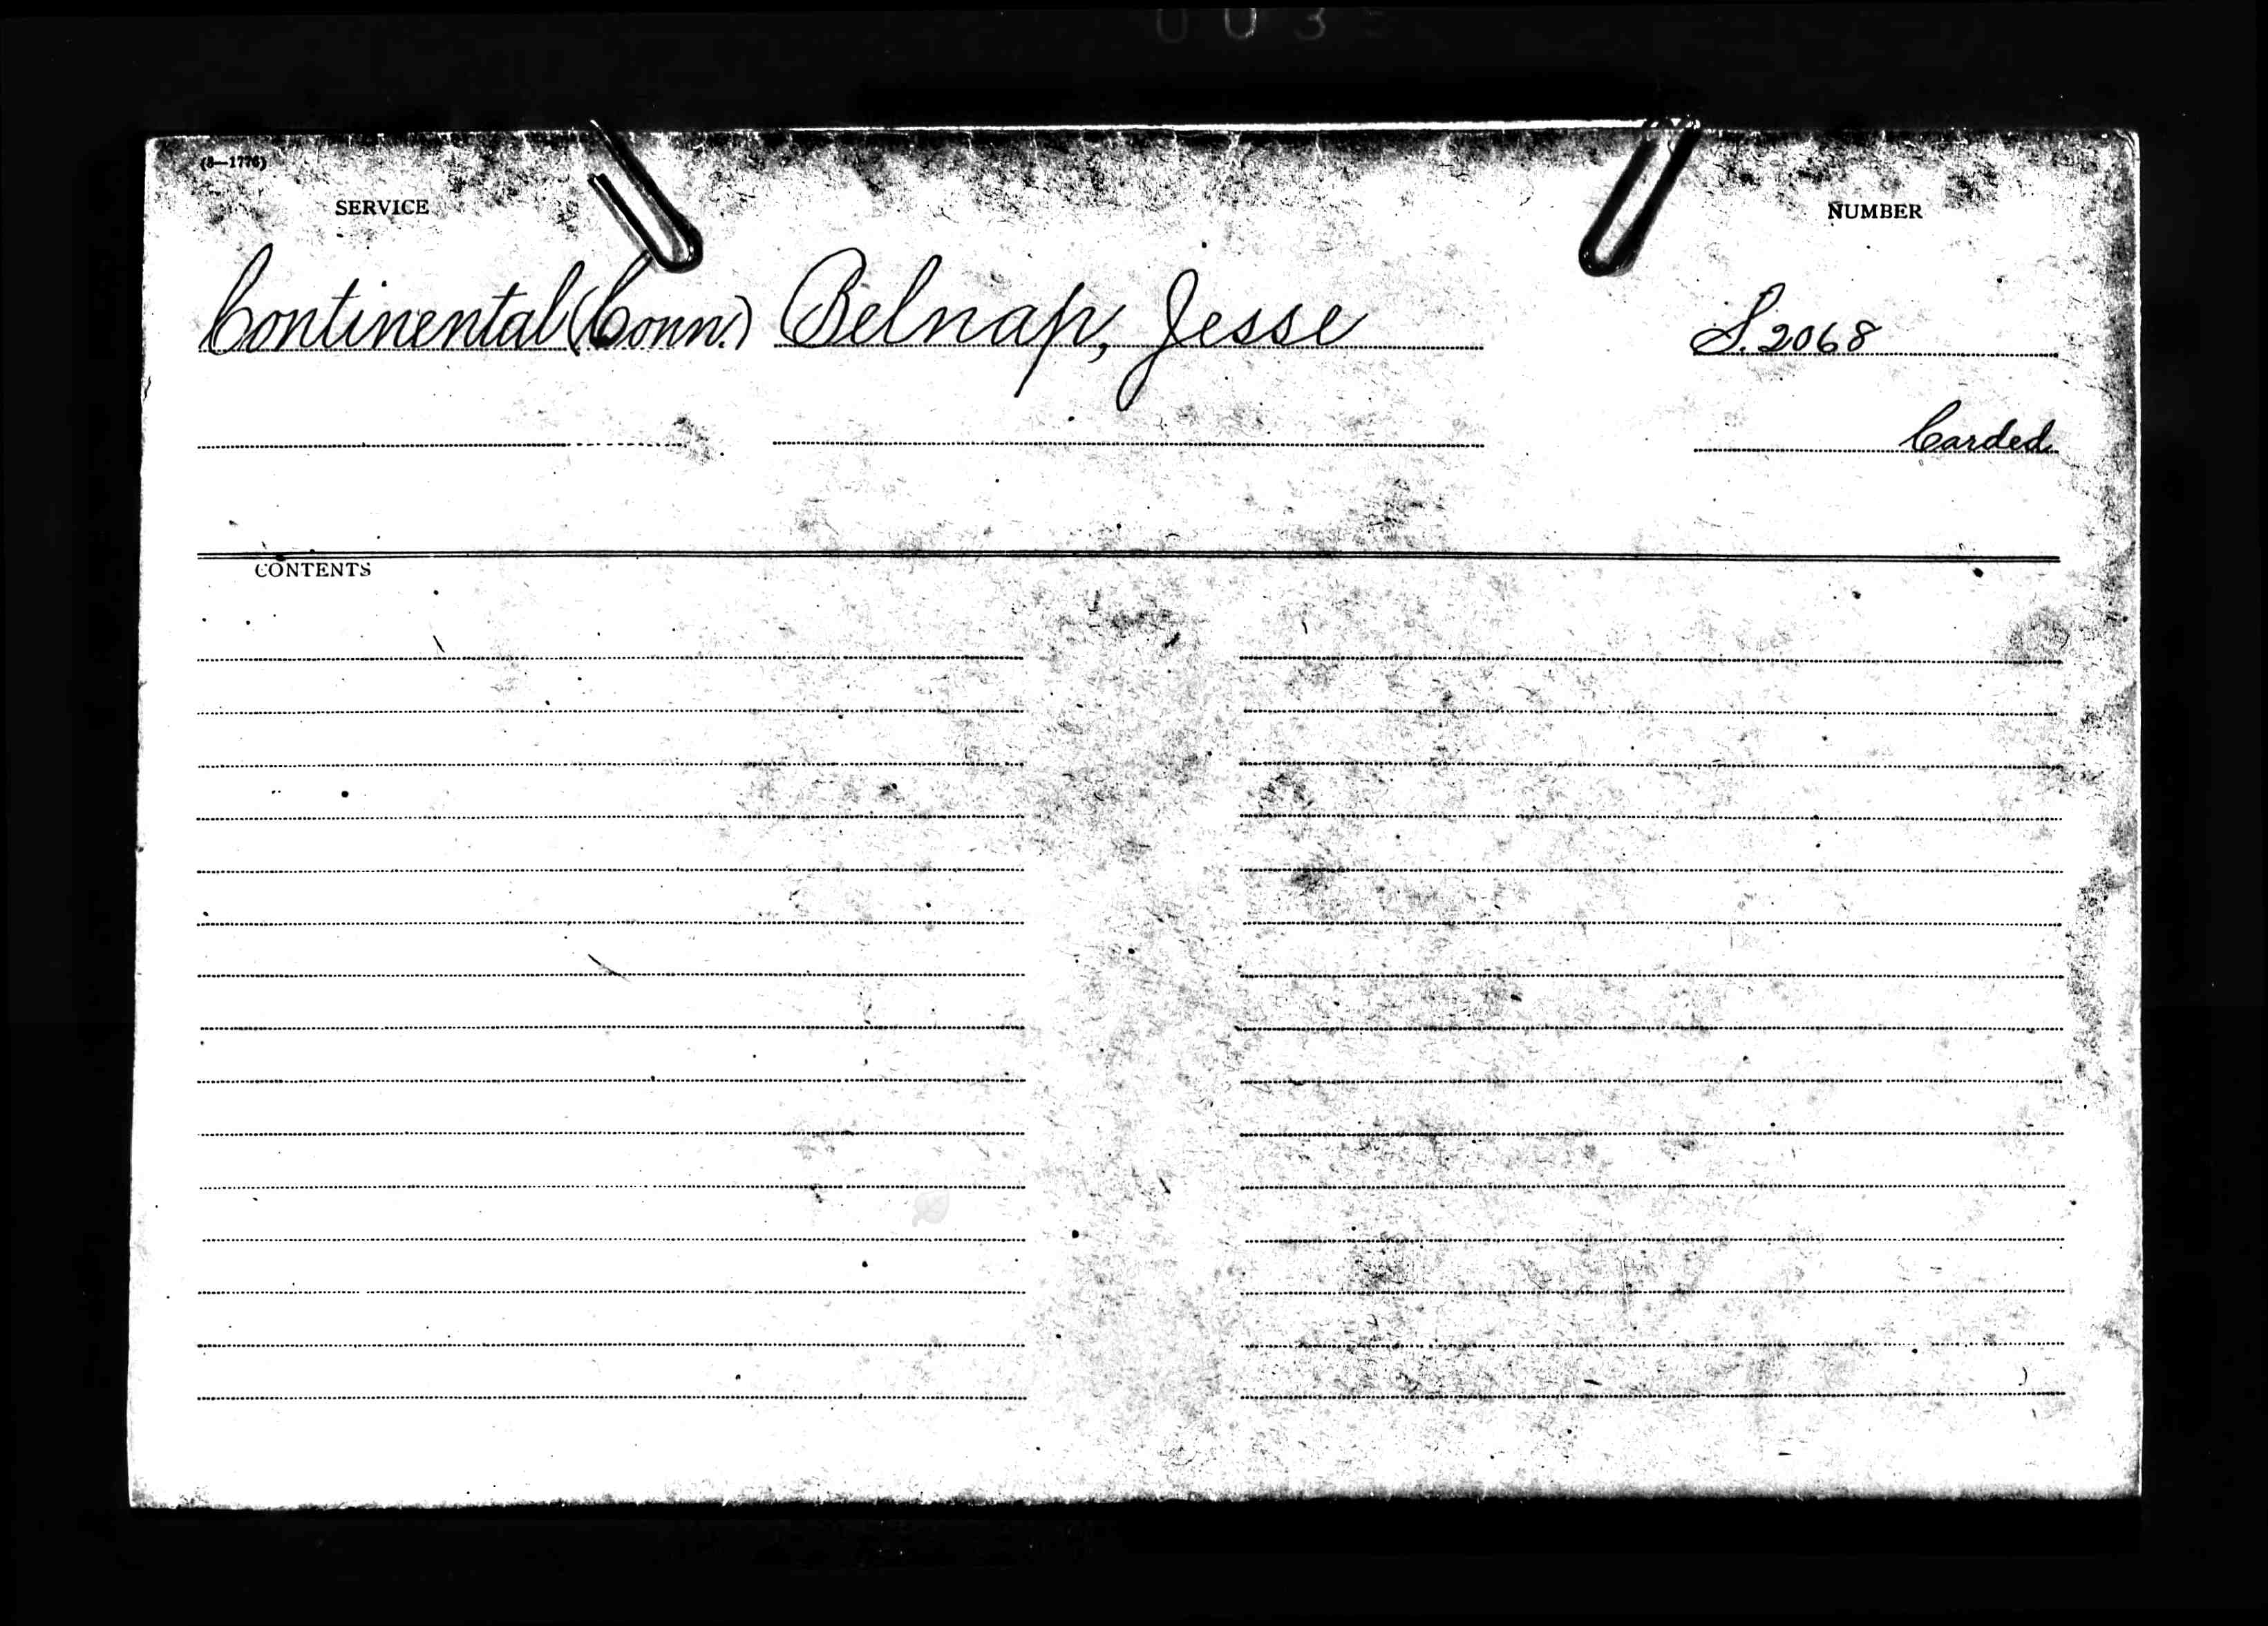 003
(3—1776)
SERVICE
NUMBER
Continental (Conn.) Belnap, Jesse S. 2068
Carded
CONTENTS